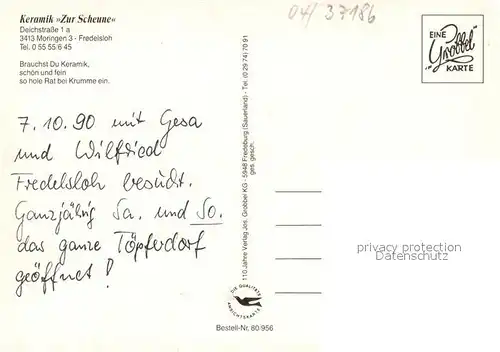 Keramik »Zur Scheune«
Deichstraße 1 a
3413 Moringen 3 - Fredelsloh
Tel. 0 55 55/6 45
Brauchst Du Keramik,
schön und fein
so hole Rat bei Krumme ein.
04/37186
EINE
"Grobbel"
KARTE
7.10.90 mit Gesa
und Wilfried
Fredelsloh besucht.
Ganzjährig Sa. und So.
das ganze Töpferdorf
geöffnet!
110 Jahre Verlag Jos. Grobbel KG - 5948 Fredeburg (Sauerland) - Tel. (0 29 74) 70 91
ges. gesch.
privacy protection
Datenschutz
DIE QUALITÄTS
ANSICHTSKARTE
Bestell-Nr. 80/956